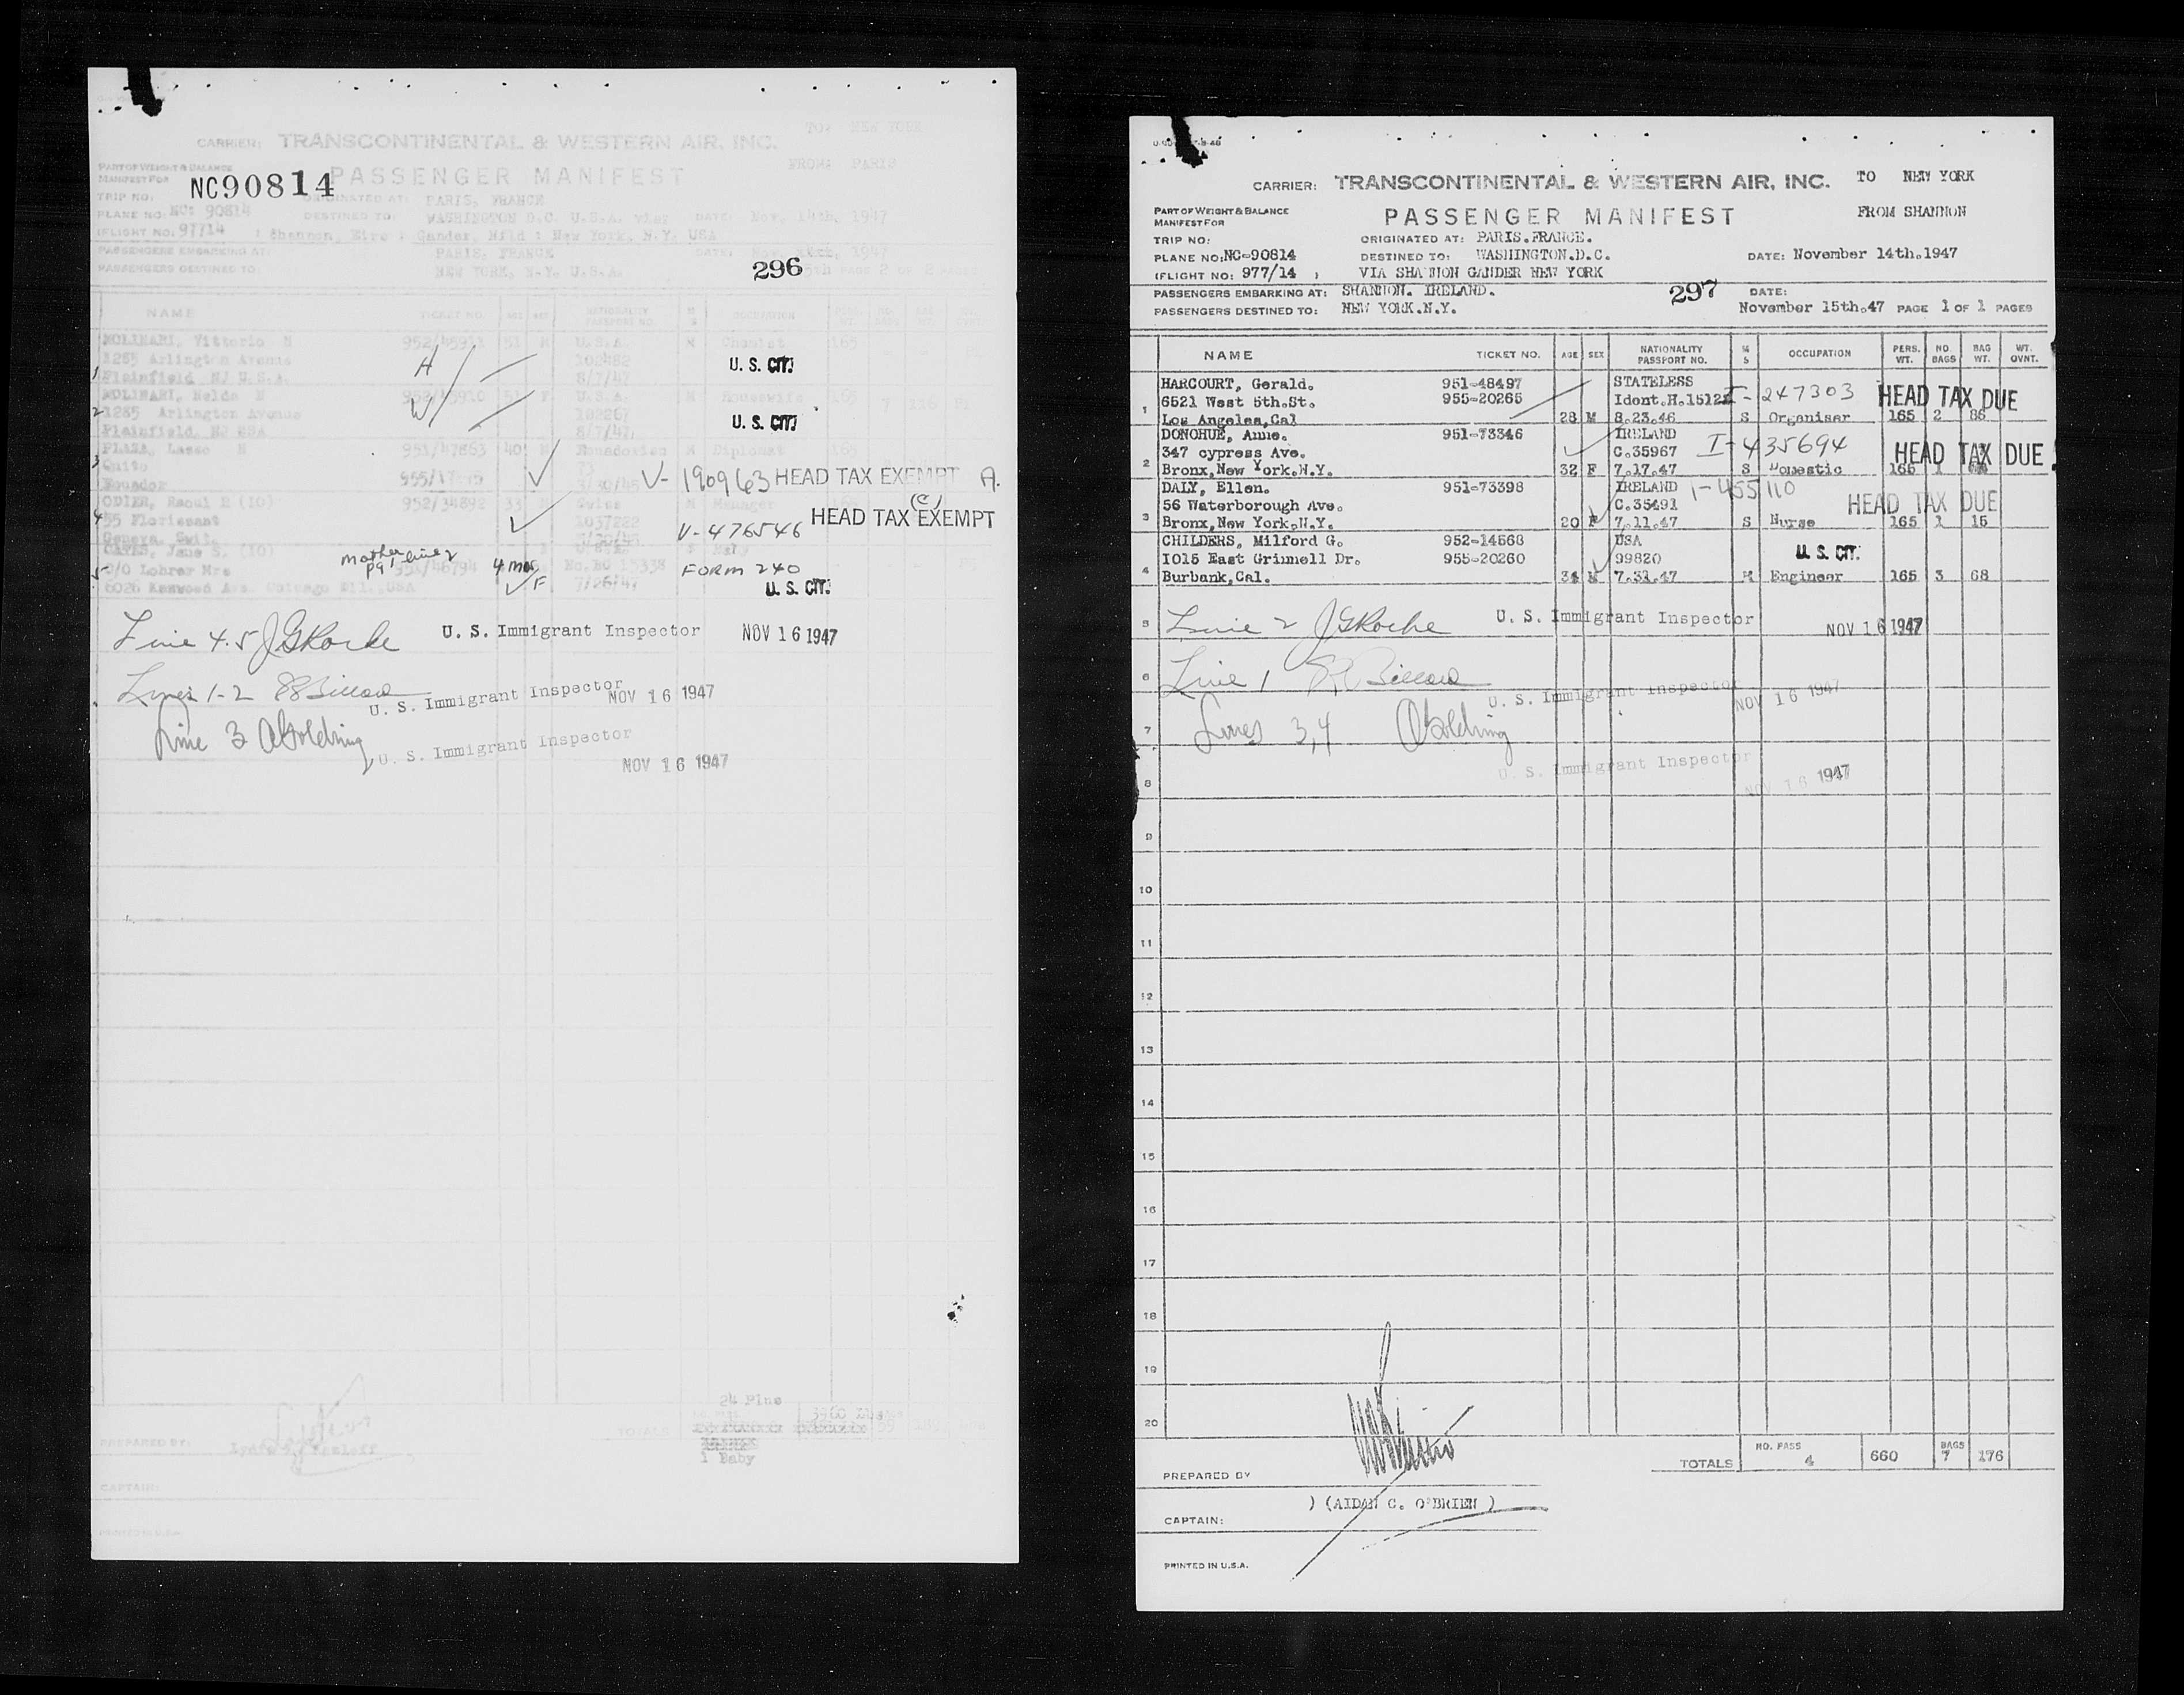 TO: NEW YORK
CARRIER: TRANSCONTINENTAL & WESTERN AIR, INC.
FROM: PARIS
PART OF WEIGHT & BALANCE
MANIFEST FOR
NC90814 PASSENGER MANIFEST
TRIP NO: ORIGINATED AT: PARIS, FRANCE
PLANE NO: NC: 90814 DESTINED TO: WASHINGTON D.C. U.S.A. via: DATE: Nov. 14th, 1947
(FLIGHT NO: 977/14 ) Shannon, Eire : Gander, Nfld : New York, N.Y. USA
PASSENGERS EMBARKING AT: PARIS, FRANCE DATE: 1947
PASSENGERS DESTINED TO: NEW YORK, N.Y. U.S.A. PAGE 2 OF 2 PAGES
296
NAME TICKET NO. AGE SEX NATIONALITY PASSPORT NO. M S OCCUPATION
MOLINARI, Vittorio H 51 M U.S.A. M Chemist 165
1285 Arlington Avenue H 102482 U. S. CIT.
1 Plainfield NJ U.S.A. 8/7/47
MOLINARI, Helde N F U.S.A. M Housewife 165
2 1285 Arlington Avenue W 102267 U. S. CIT.
Plainfield, NJ USA 8/7/47
PLAZA, Lasso H 951/47863 40 M Ecuadorian M Diplomat
3 Quito 73 V- 190963 HEAD TAX EXEMPT A.
Ecuador 955/
ODIER, Raoul E (IO) 952/34892 33 Swiss M Manager (C)
4 55 Florissant 1037222 HEAD TAX EXEMPT
Geneva, Swit. V-476546
Jane S. (IO) mother line 2 pg 1
5 C/O Lohrer Mrs 4 mos No. 15338 FORM 240
6026 Kenwood Ave Chicago Ill. USA F U. S. CIT.
Line 4.5 JGRoche U. S. Immigrant Inspector NOV 16 1947
Lines 1-2 U. S. Immigrant Inspector NOV 16 1947
Line 3 AGolding U. S. Immigrant Inspector
NOV 16 1947
24 Plus
TOTALS
1 Baby
PREPARED BY:
CAPTAIN:
PRINTED IN U.S.A.
CARRIER: TRANSCONTINENTAL & WESTERN AIR, INC. TO NEW YORK
PART OF WEIGHT & BALANCE
MANIFEST FOR
PASSENGER MANIFEST FROM SHANNON
TRIP NO: ORIGINATED AT: PARIS.FRANCE.
PLANE NO: NC-90814 DESTINED TO: WASHINGTON.D.C. DATE: November 14th.1947
(FLIGHT NO: 977/14 ) VIA SHANNON GANDER NEW YORK
PASSENGERS EMBARKING AT: SHANNON. IRELAND. 297 DATE:
PASSENGERS DESTINED TO: NEW YORK.N.Y. November 15th.47 PAGE 1 OF 1 PAGES
NAME TICKET NO. AGE SEX NATIONALITY PASSPORT NO. M S OCCUPATION PERS. WT. NO. BAGS BAG WT. WT. OVNT.
HARCOURT, Gerald. 951-48497 STATELESS
6521 West 5th.St. 955-20265 Ident.H.15122 I-247303 HEAD TAX DUE
1 Los Angeles,Cal 28 M 8.23.46 S Organiser 165 2 86
DONOHUE, Anne. 951-73346 IRELAND
347 cypress Ave. C.35967 I-435694 HEAD TAX DUE
2 Bronx,New York.N.Y. 32 F 7.17.47 S Domestic 165 1
DALY, Ellen. 951-73398 IRELAND 1-455110
56 Waterborough Ave. C.35491 HEAD TAX DUE
3 Bronx,New York,N.Y. 20 F 7.11.47 S Nurse 165 1 15
CHILDERS, Milford G. 952-14568 USA
1015 East Grinnell Dr. 955-20260 99820 U. S. CIT.
4 Burbank,Cal. 34 M 7.31.47 M Engineer 165 3 68
5 Line 2 JGRoche U. S. Immigrant Inspector NOV 16 1947
6 Line 1 U. S. Immigrant Inspector NOV 16 1947
7 Lines 3,4 AGolding
8 U. S. Immigrant Inspector NOV 16 1947
9
10
11
12
13
14
15
16
17
18
19
20
TOTALS NO. PASS 4 660 BAGS 7 176
PREPARED BY
) (AIDAN C. O'BRIEN )
CAPTAIN:
PRINTED IN U.S.A.